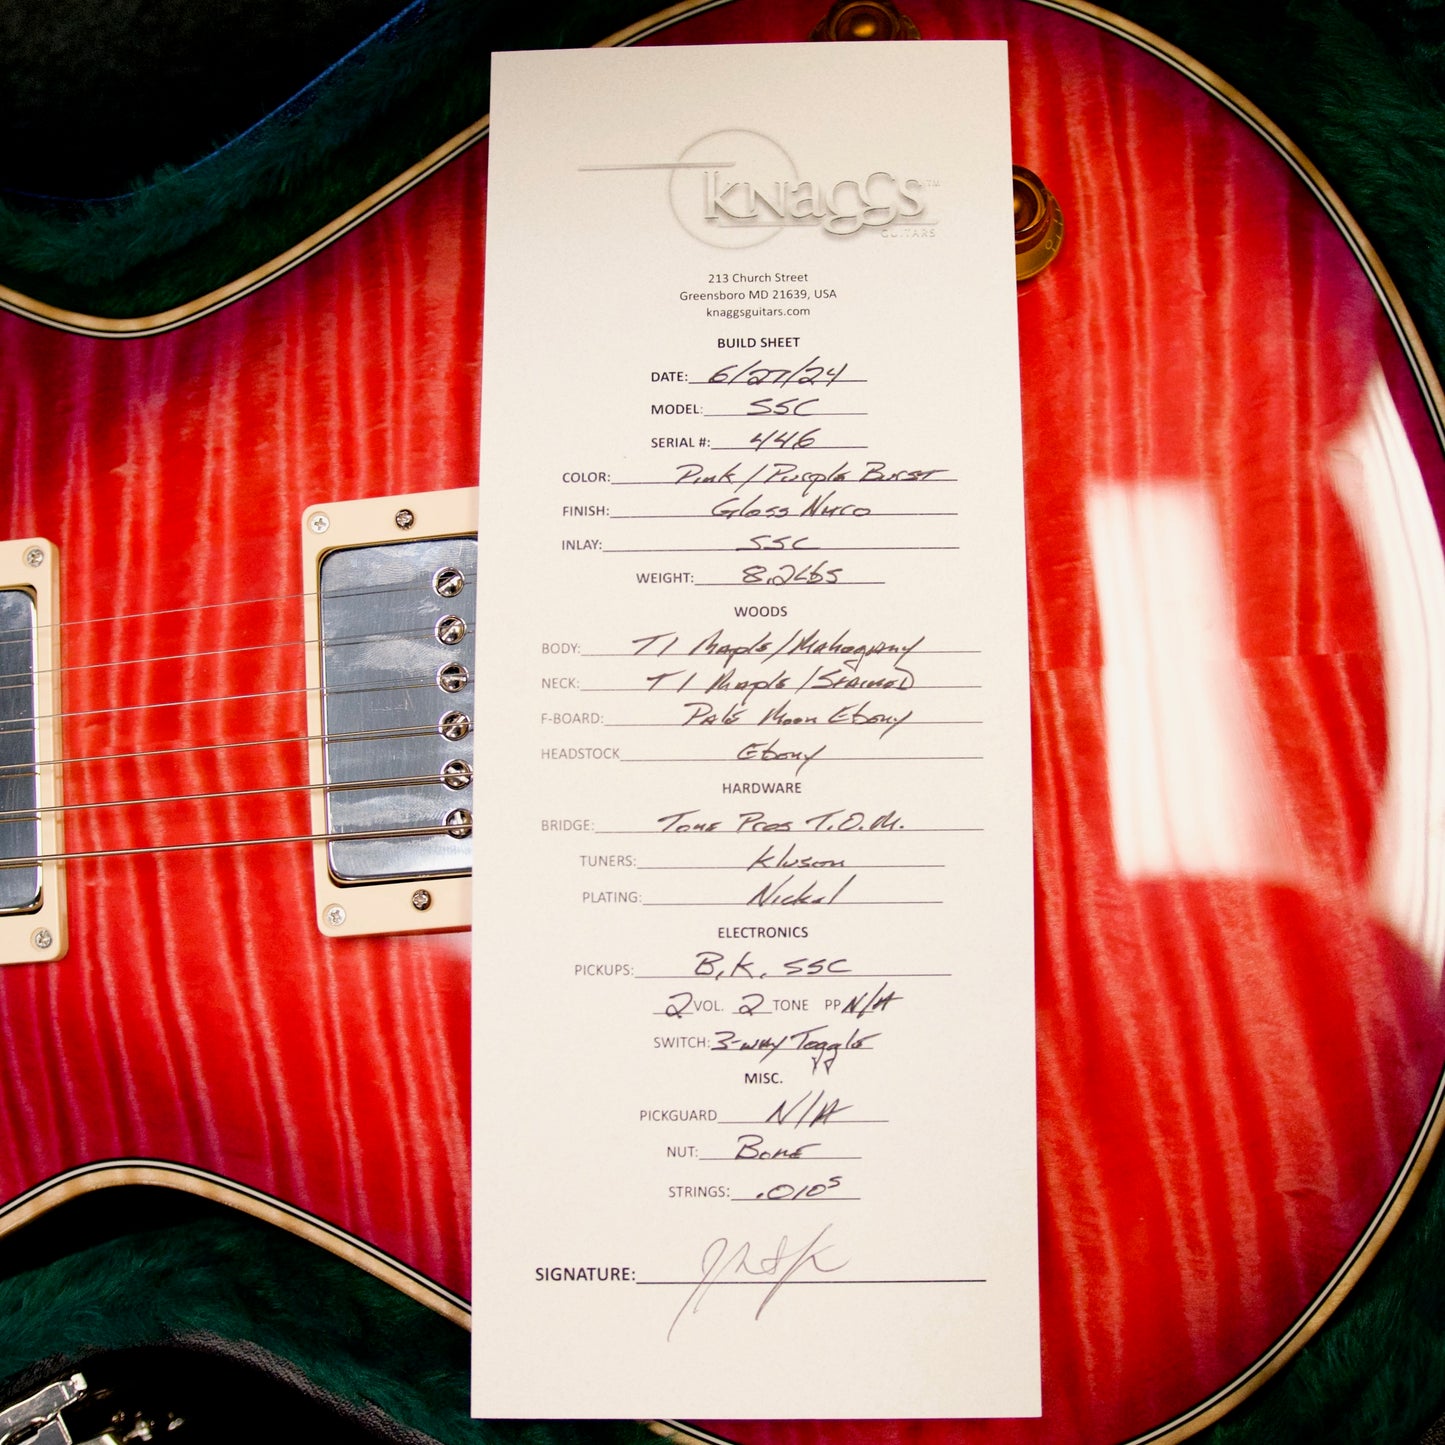 Knaggs™
GUITARS
213 Church Street
Greensboro MD 21639, USA
knaggsguitars.com
BUILD SHEET
DATE: 6/27/24
MODEL: SSC
SERIAL #: 446
COLOR: Pink / Purple Burst
FINISH: Gloss Nitro
INLAY: SSC
WEIGHT: 8.2Lbs
WOODS
BODY: T1 Maple / Mahogany
NECK: T1 Maple / Stained
F-BOARD: Pale Moon Ebony
HEADSTOCK Ebony
HARDWARE
BRIDGE: Tone Pros T.O.M.
TUNERS: Kluson
PLATING: Nickel
ELECTRONICS
PICKUPS: B.K. SSC
2 VOL. 2 TONE PP N/A
SWITCH: 3-way Toggle
MISC.
PICKGUARD N/A
NUT: Bone
STRINGS: .010s
SIGNATURE: